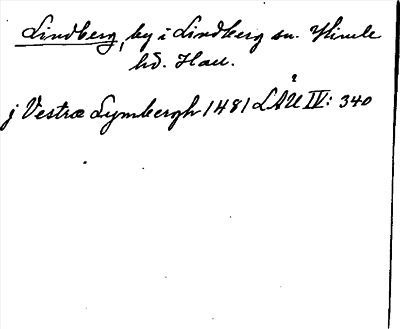 Lindberg, by i Lindberg sn. Himle
hd. Hall.
j Vestræ Lymbergh 1481 LÅU IV: 340